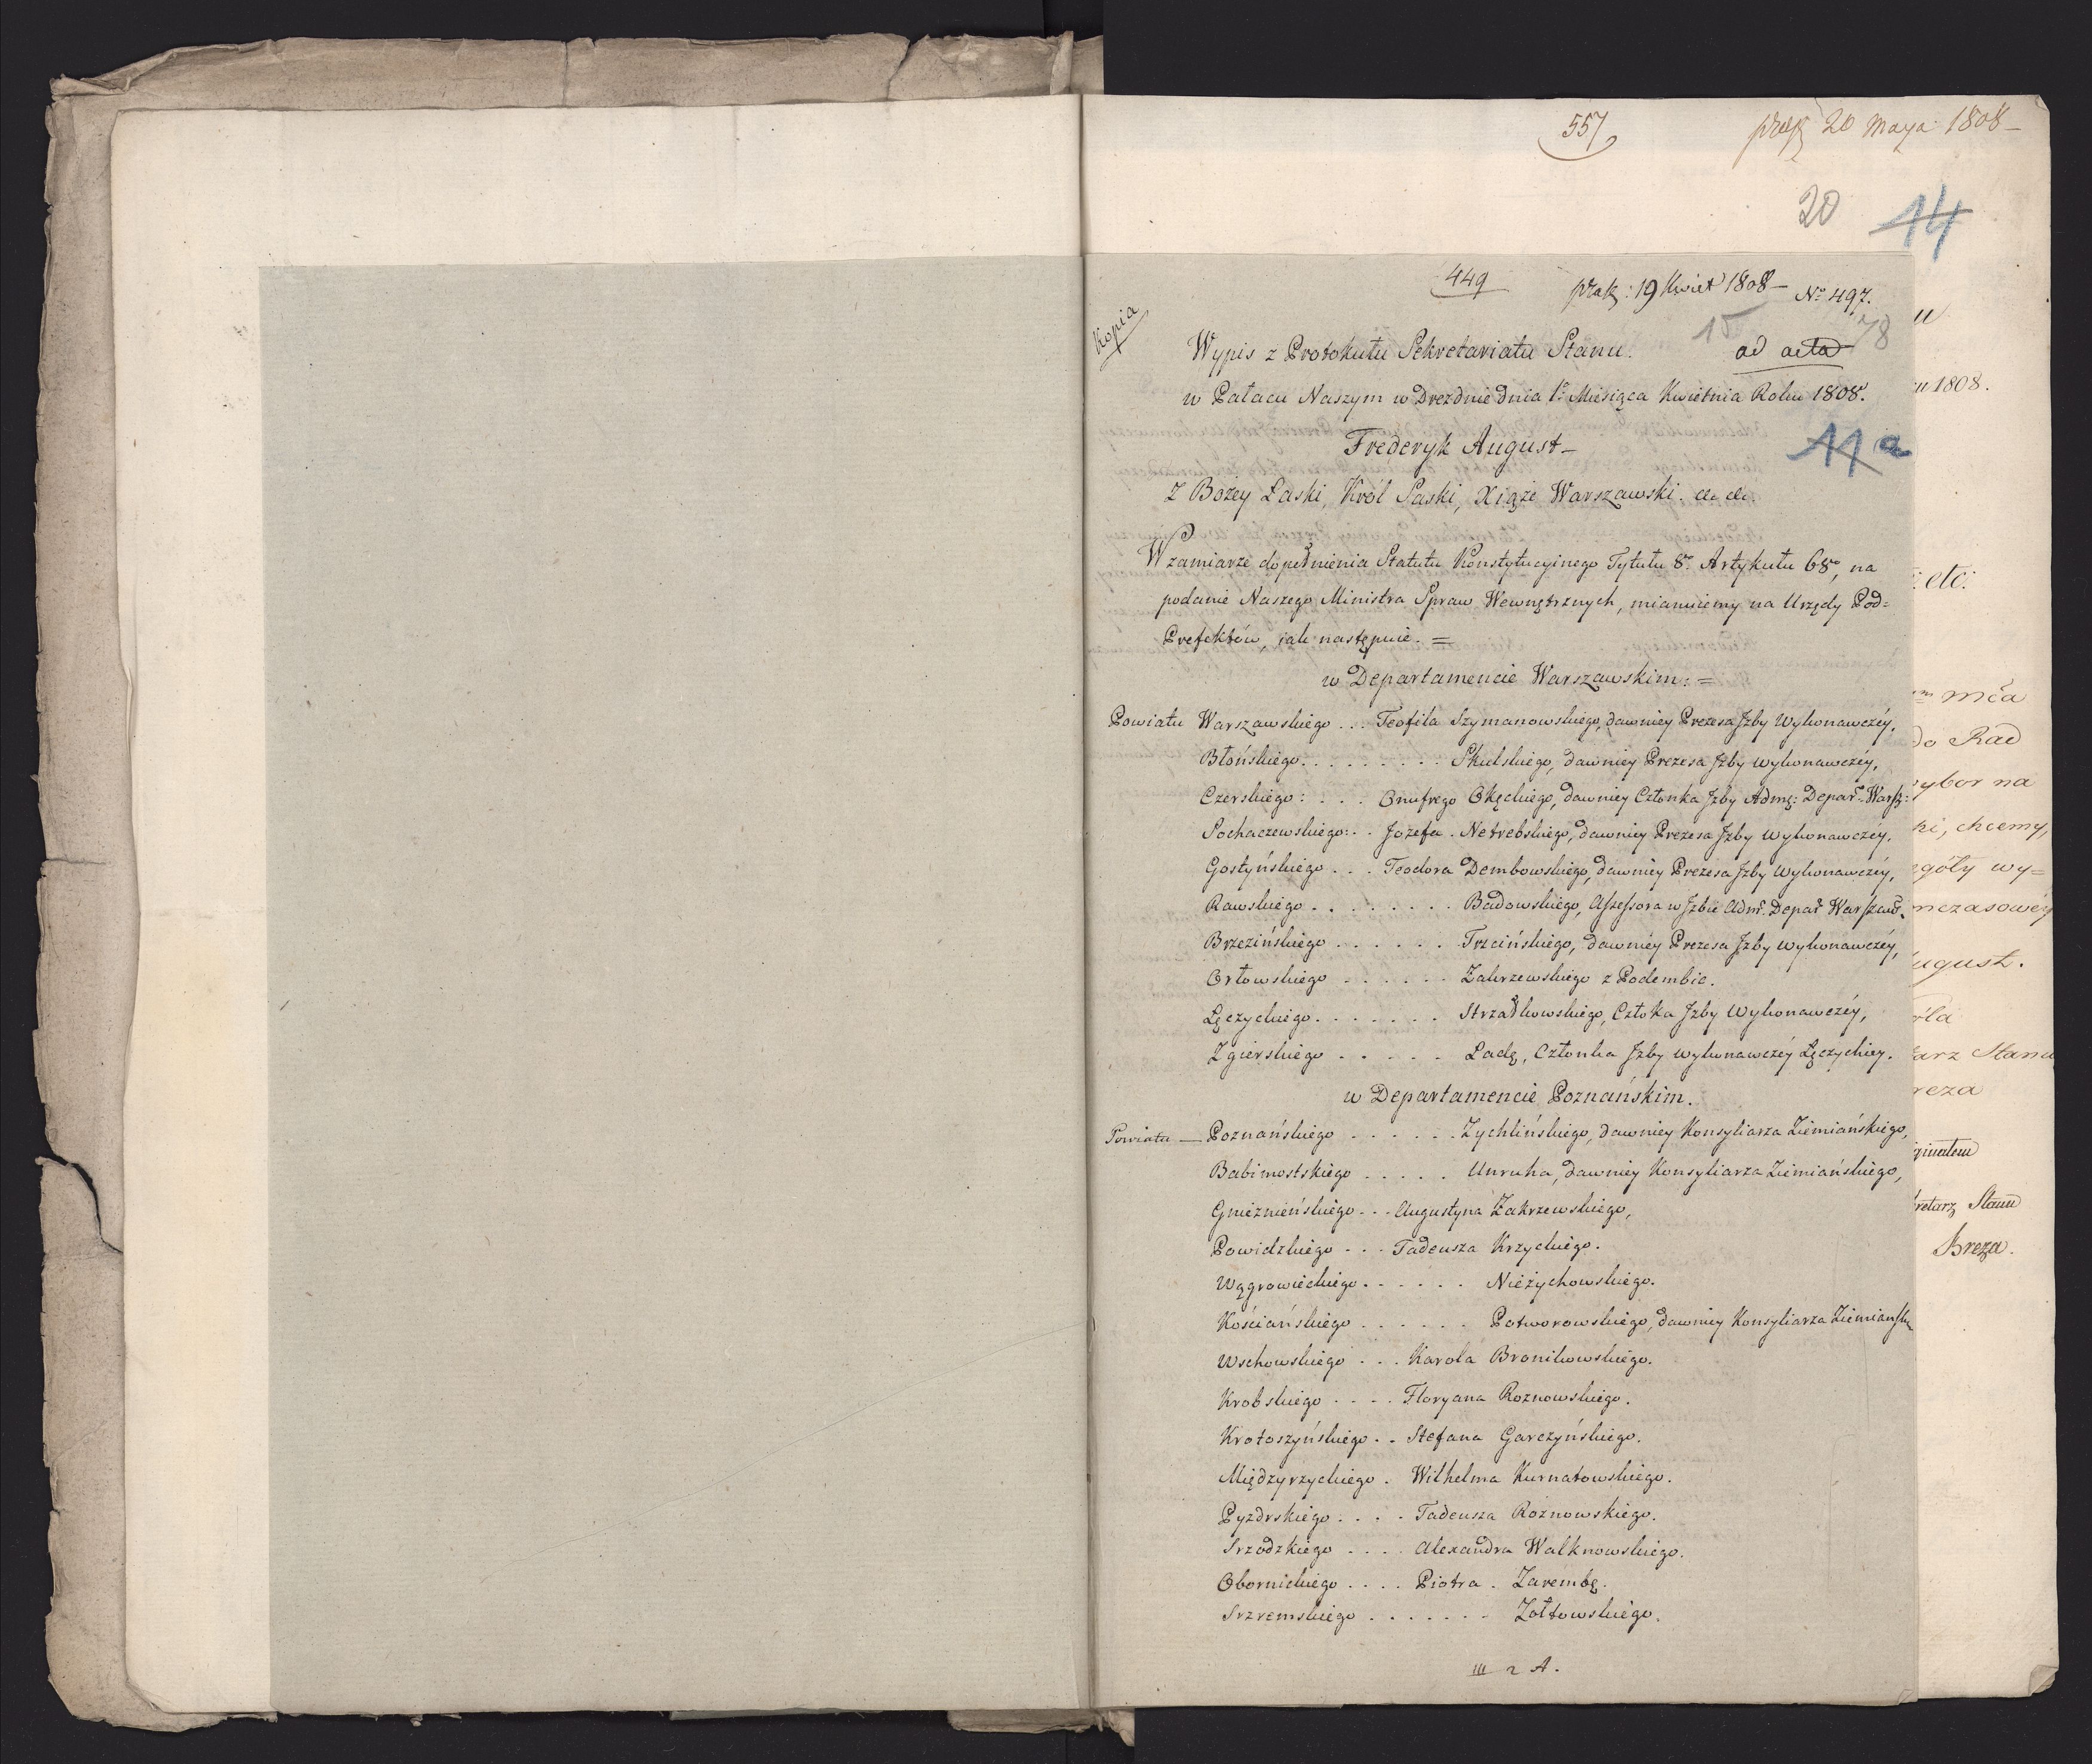 557
20 Maya 1808 –
20
14
449
19 Kwiet 1808 – No 497.
Kopia
15
78
Wypis z Protokułu Sekretariatu Stanu.
ad acta
w Pałacu Naszym w Dreznie dnia 1o Miesiąca Kwietnia Roku 1808.
Frederyk August –
11 a
Z Bożey Łaski, Król Saski, Xiąże Warszawski. etc etc.
W zamiarze dopełnienia Statutu Konstytucyinego Tytułu 8o Artykułu 68o, na
podanie Naszego Ministra Spraw Wewnętrznych, mianuiemy na Urzędy Pod=
Prefektów, iak następuie. =
w Departamencie Warszawskim: =
Powiatu Warszawskiego . . . Teofila Szymanowskiego, dawniey Prezesa Jzby Wykonawczéy,
Błońskiego . . . . . . . . . Skulskiego, dawniey Prezesa Jzby wykonawczéy,
Czerskiego : . . . Onufrego Okęckiego, dawniey Członka Jzby Adm: Depar: Warsz:
Sochaczewskiego: . . Jozefa . Netrebskiego, dawniey Prezesa Jzby Wykonawczéy.
Gostyńskiego . . . Teodora Dembowskiego, dawniey Prezesa Jzby Wykonawczéy,
Rawskiego . . . . . . . . Badowskiego, Assessora w Jzbie Adm. Depar Warszaw.
Brzezińskiego . . . . . . Trzcińskiego, dawniéy Prezesa Jzby Wykonawczéy,
Orłowskiego . . . . . . Zakrzewskiego z Podembic.
Łęczyckiego . . . . . . . Strzałkowskiego, Człoka Jzby Wykonawczéy,
Zgierskiego . . . . . Ładę, Członka Jzby wykonawczéy Łęczyckiey.
w Departamencie Poznańskim.
Powiatu — Poznańskiego . . . . . . Zychlińskiego, dawniey Konsyliarza Ziemiańskiego,
Babimostskiego . . . . . Unruha, dawniey Konsyliarza Ziemiańskiego,
Gnieznieńskiego . . . Augustyna Zakrzewskiego,
Powidzkiego . . . Tadeusza Krzyckiego.
Wągrowieckiego . . . . . . Nieżychowskiego.
Kościańskiego . . . . . . Potworowskiego, dawniey Konsyliarza Ziemiańsk
Wschowskiego . . . Karola Bronikowskiego.
Krobskiego . . . . Floryana Roznowskiego.
Krotoszyńskiego . . Stefana Garczyńskiego.
Międzyrzyckiego . Wilhelma Kurnatowskiego.
Pyzdrskiego . . . . Tadeusza Roznowskiego.
Srzodzkiego . . . . Alexandra Walknowskiego.
Obornickiego . . . . Piotra . Zarembę.
Srzremskiego . . . . . . . Zołtowskiego.
III 2 A.
u
u 1808.
etc:
mca
do Rad
wybor na
ki, chcemy,
góły wy=
mczasowéy
ugust.
óla
arz Stanu
reza
ginałem
kretarz Stanu
Breza.